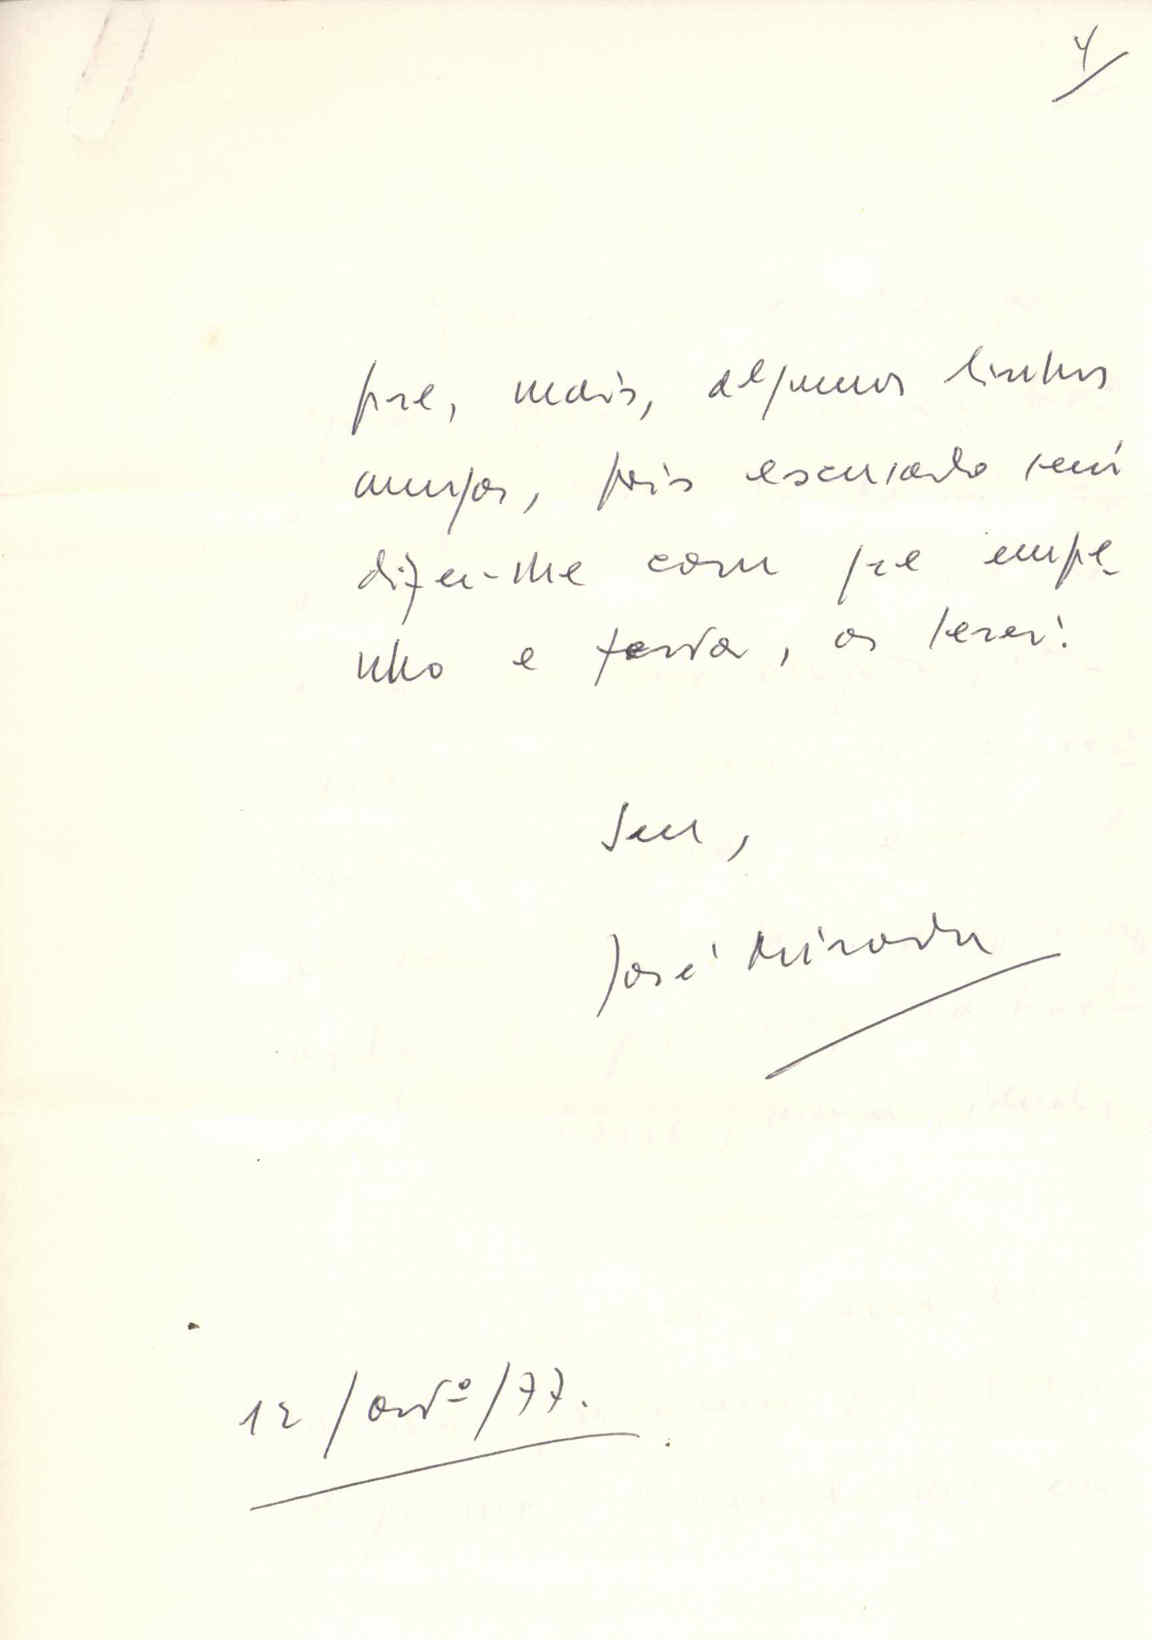 4
que, mais, algumas linhas
amigas, pois escusado será
dizer-lhe com que empe-
nho e ternura, as lerei!
Seu,
José
12/outº/77.